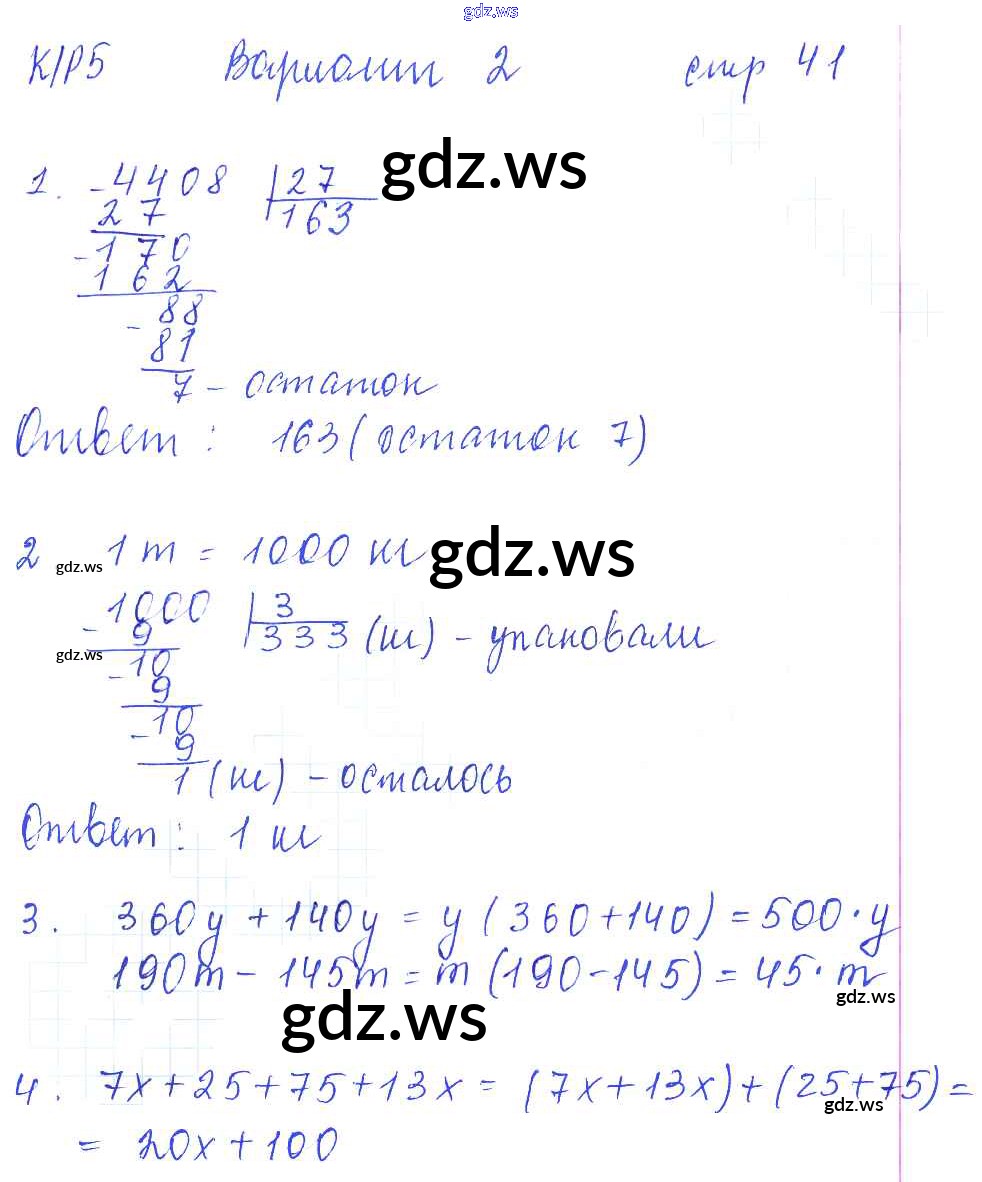 gdz.ws
К/Р5 Вариант 2 стр 41
gdz.ws
1. -4408 |27
27 163
-170
162
88
-81
7 - остаток
Ответ: 163 (остаток 7)
gdz.ws
2 1 т = 1000 кг
gdz.ws
1000 |3
-9 333 (кг) - упаковали
gdz.ws
-10
9
-10
9
1 (кг) - осталось
Ответ: 1 кг
3. 360y + 140y = y (360+140) = 500·y
190m - 145m = m (190-145) = 45·m
gdz.ws
gdz.ws
4. 7x+25+75+13x = (7x+13x)+(25+75)=
gdz.ws
= 20x+100